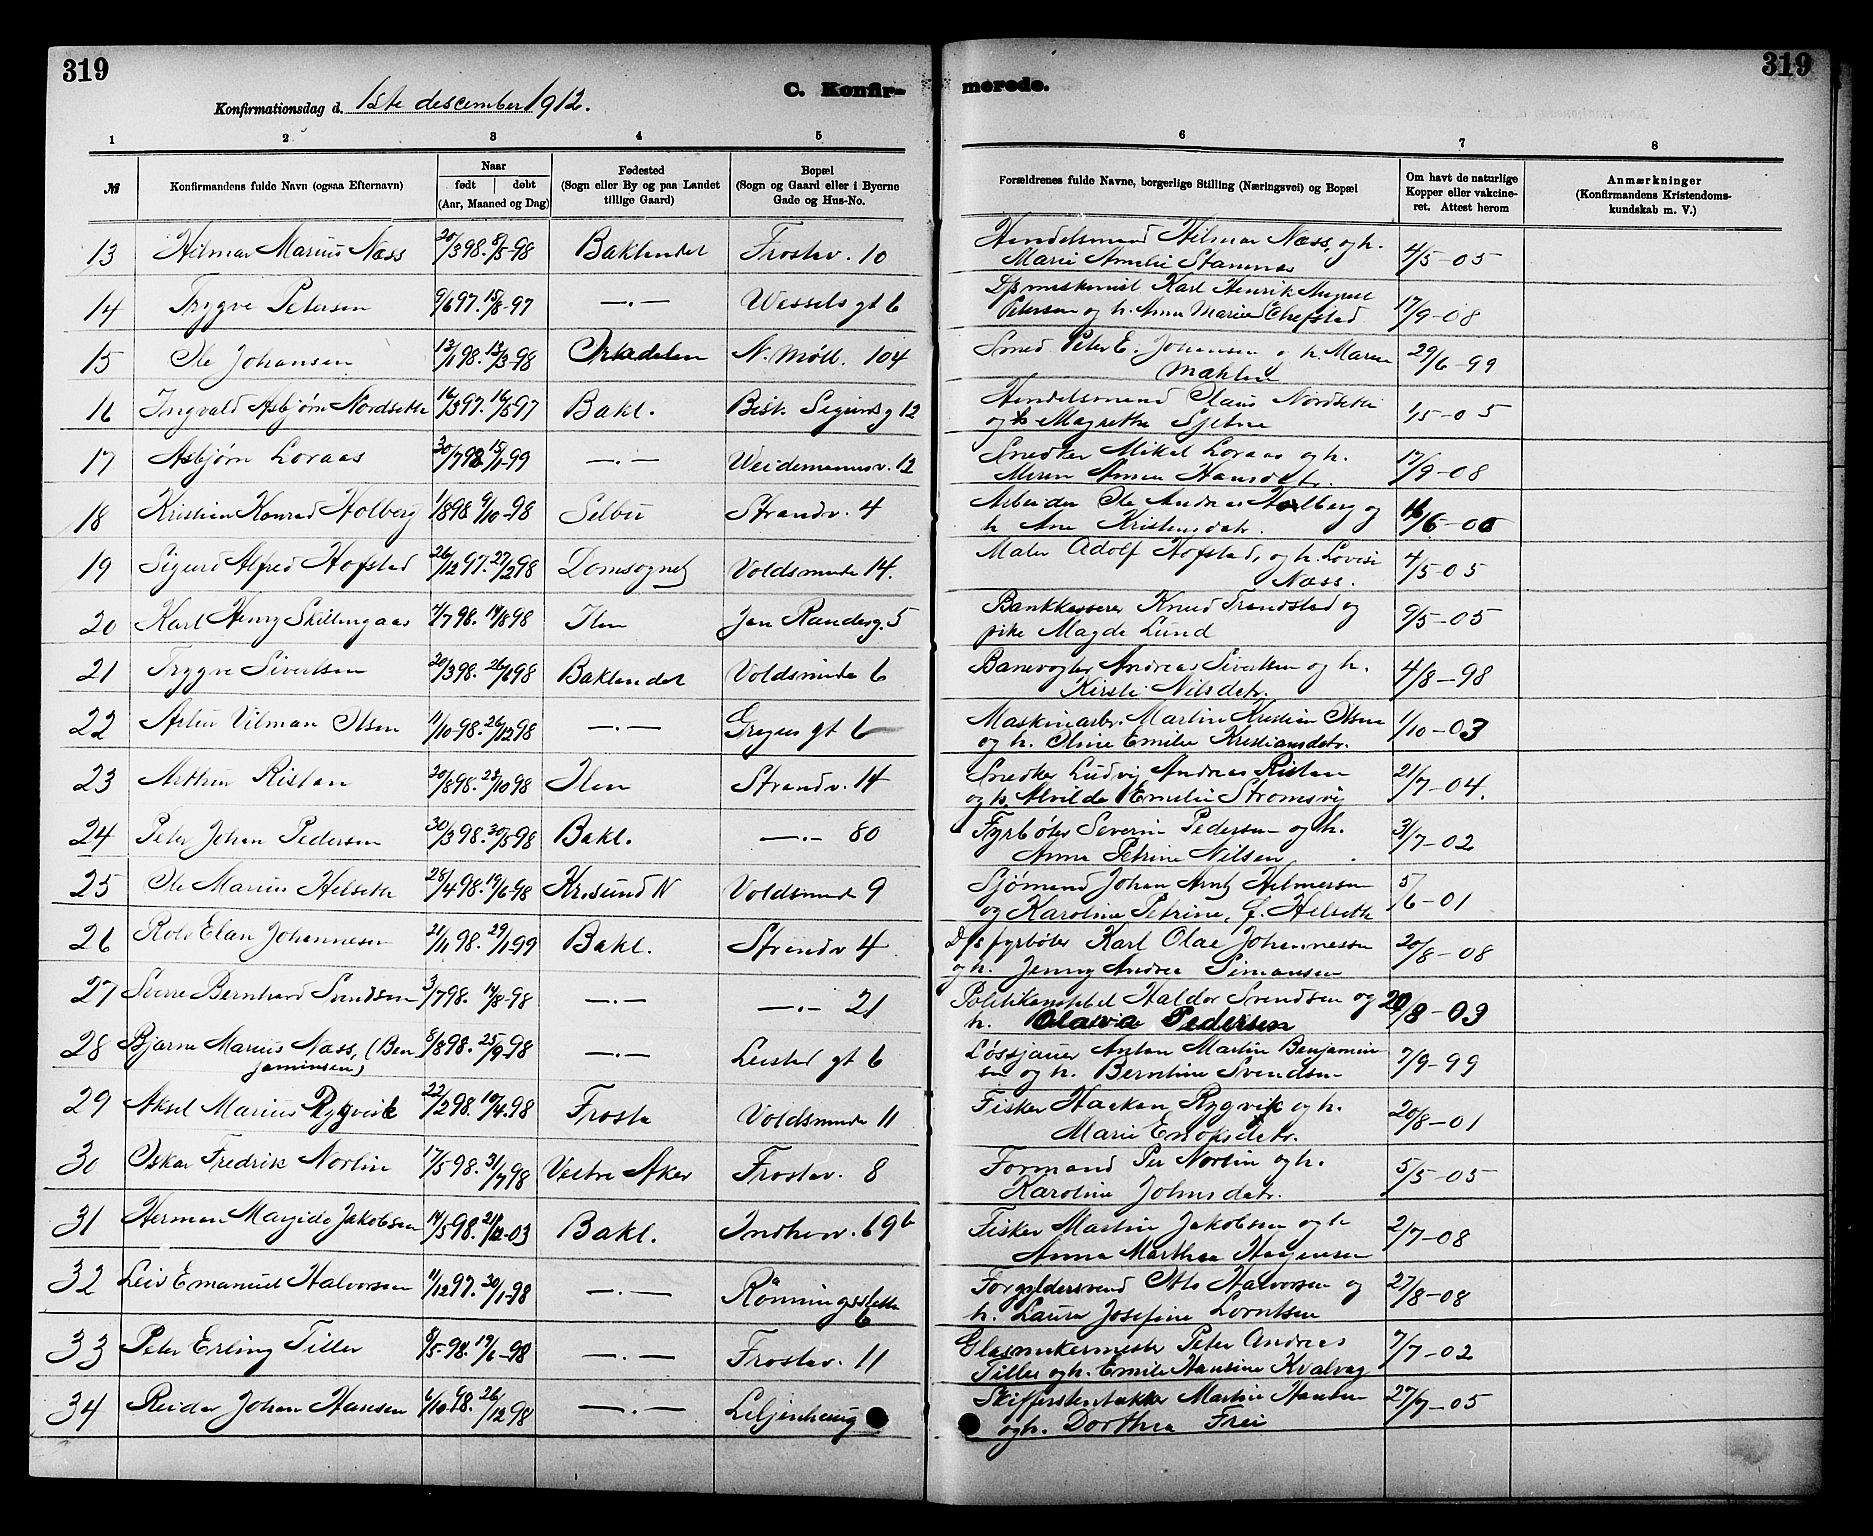 319
319
C. Konfir-
merede.
Konfirmationsdag d. 1ste descember 1912.
1 2 3 4 5 6 7 8
№
Konfirmandens fulde Navn (ogsaa Efternavn)
Naar
født døbt
(Aar, Maaned og Dag)
Fødested
(Sogn eller By og paa Landet
tillige Gaard)
Bopæl
(Sogn og Gaard eller i Byerne
Gade og Hus-No.
Forældrenes fulde Navne, borgerlige Stilling (Næringsvei) og Bopæl
Om havt de naturlige
Kopper eller vakcine-
ret. Attest herom
Anmærkninger
(Konfirmandens Kristendoms-
kundskab m. V.)
13 Hilmar Marius Næss 20/3 98. 8/5-98 Baklandet Frostav. 10 Handelsmand Hilmar Næss, og h. 4/5-05
Marie Amelie Stamnes
14 Trygve Petersen 9/6 97. 15/8-97 —.— Wessels gt 6 D/s maskinist Karl Henrik August 17/9-08
Petersen og h. Anna Marie
15 Ole Johansen 13/1 98. 13/3-98 N. Møll. 104 Smed Peter E. Johansen og h. Maren 29/6-99
Mæhlen
16 Ingvald Asbjørn Nordseth 16/3 97. 16/5-97 Bakl. Bisk. Sigurds g 12 Handelsmand Olaus Nordseth 1/5-05
og h Magrethe Sjetne
17 Asbjørn Loraas 30/7 98 15/1-99 —.— Weidemannsv. 12 Snedker Mikal Loraas og h. 17/9-08
Meren Anna Hansdatr.
18 Kristian Konrad Holberg 1/8 98 9/10-98 Selbu Strandv. 4 Arbeider Ole Andreas Holberg og 16/6-00
h Ane Kristensdatr.
19 Sigurd Alfred Hofstad 26/12 97. 27/2 98 Domsognet Voldsminde 14. Maler Adolf Hofstad, og h. Lovise 4/5-05
Næss.
20 Karl Henry Skillingaas 4/7 98. 14/8 98 Ilen Jon Randesg. 5 Bankkasserer Knud Trondstad og 9/5-05
pike Magda Lund
21 Trygve Sivertsen 20/3 98. 26/6 98 Baklandet Voldsminde 6 Banevogter Andreas Sivertsen og h. 4/8-98
Kirsti Nilsdatr.
22 Artur Vilman Olsen 11/10-98. 26/12 98 —.— Gregus gt 6 Maskinarb. Martin Kristian Olsen 1/10-03
og h. Oline Emilie Kristiansdatr.
23 Arthur Ristan 20/8 98. 23/10 98 Ilen Strandv. 14 Snedker Ludvig Andreas Ristan 21/7-04.
og h. Alvilde Emelie Strømsvig
24 Peter Johan Pedersen 30/3 98. 30/5-98 Bakl. —.— 80 Fyrbøter Severin Pedersen og h. 3/7-02
Anna Petrine Nilsen
25 Ole Marius Helseth 28/4 98. 19/6-98 Kr.sund N Voldsminde 9 Sjømand Johan Arnt Helmersen 5/6-01
og Karoline Petrine, f. Helseth
26 Rolv Elan Johannesen 21/11 98. 29/1-99 Bakl. Strandv 4 D/s fyrbøter Karl Olae Johannessen 20/8-08
og h. Jenny Andrea Simonsen
27 Sverre Bernhard Svendsen 3/7 98. 14/8-98 —.— —.— 21 Politikonstabel Haldor Svendsen og 20/8-09
h. Olava Pedersen
28 Bjarne Marius Næss, (Ben 8/8 98. 25/9-98 —.— Leistad gt 6 Løssjauer Anton Martin Benjamin 7/9-99
jaminsen) sen og h. Berntine Svendsen
29 Aksel Marius Rygvik 22/2 98. 10/4-98 Frosta Voldsminde 11 Fisker Haakon Rygvik og h. 20/8-01
Marie Enoksdatr.
30 Oskar Fredrik Norlin 17/5-98. 31/7 98 Vestre Aker Frostav. 8 Formand Per Norlin og h. 5/5-05
Karoline Johnsdatr.
31 Herman Margido Jakobsen 14/5 98. 21/12-03 Bakl. Indherv. 69b Fisker Martin Jakobsen og h 2/7-08
Anna Marthea Haagensen
32 Leiv Emanuel Halvorsen 11/12 97. 30/1-98 —.— Rønningsletta 6 Forgyldersvend Otto Halvorsen og 27/8-08
h. Laura Josefine Lorntsen
33 Peter Erling Tiller 8/5-98. 19/6-98 —.— Frostav. 11 Glasmakermester Peter Andreas 7/7-02
Tiller og h. Emilie Hansine Kvalvag
34 Reidar Johan Hansen 6/10-98. 26/12 98 —.— Liljenhaug Skifferstentækker Martin Hansen 27/7-05
og h. Dorthea Frei